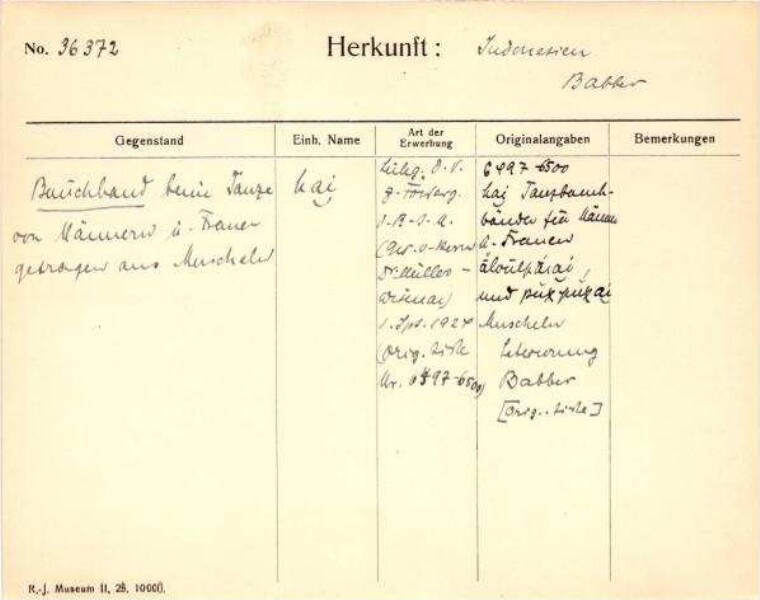 No. 36372
Herkunft: Indonesien
Babber
Gegenstand
Einh. Name
Art der Erwerbung
Originalangaben
Bemerkungen
Bauchband beim Tanze
von Männern u. Frauen
getragen aus Muscheln
kaj
Leihg. d. V.
z. Förderg.
d. R-J-M.
(Ges. v. Herrn
Dr. Müller-
Wismar)
1. Spt. 1927
(Orig. Liste
Nr. 6497-6500)
6497-6500
kaj Tanzbauch-
bänder für Männer
u. Frauen
und
Muscheln
Babber
[Orig.-Liste]
R.-J. Museum II, 28, 10000.